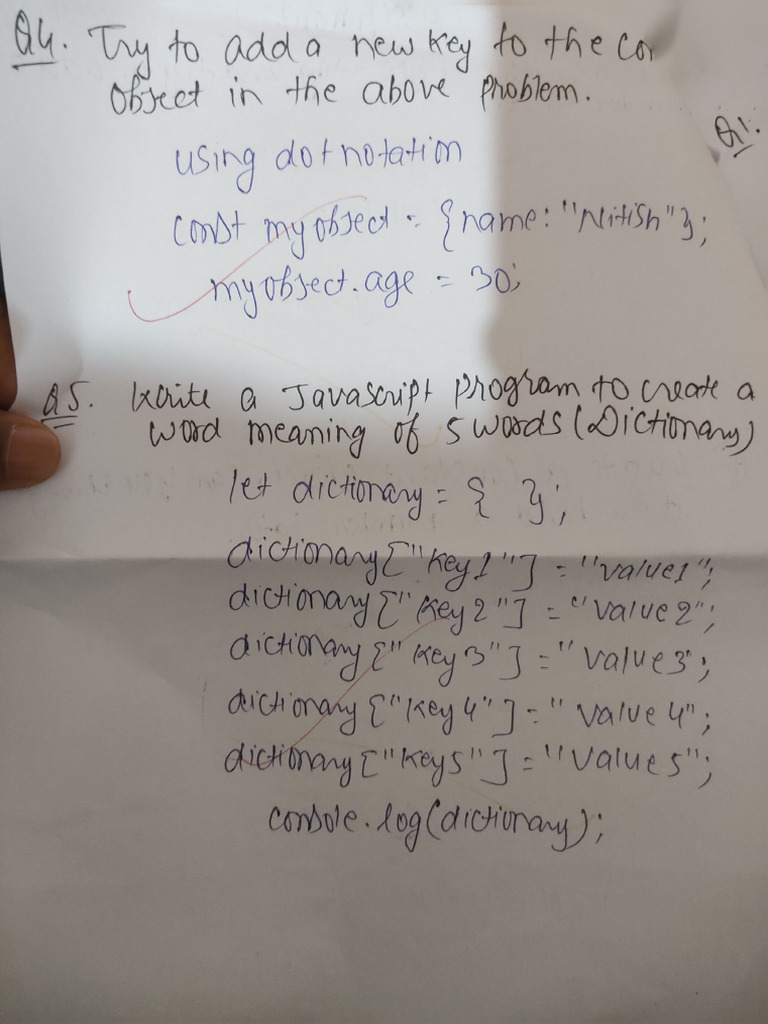 Q4. Try to add a new key to the co
object in the above problem.
Q1.
using dot notation
const myobject = {name: "Nitish"};
myobject.age = 30;
Q5. Write a Javascript program to create a
word meaning of 5 words (Dictionary)
let dictionary = { };
dictionary["key1"] = "value1";
dictionary["key2"] = "value2";
dictionary["key3"] = "value3;
dictionary["key4"] = "value4";
dictionary["key5"] = "value5";
console.log(dictionary);